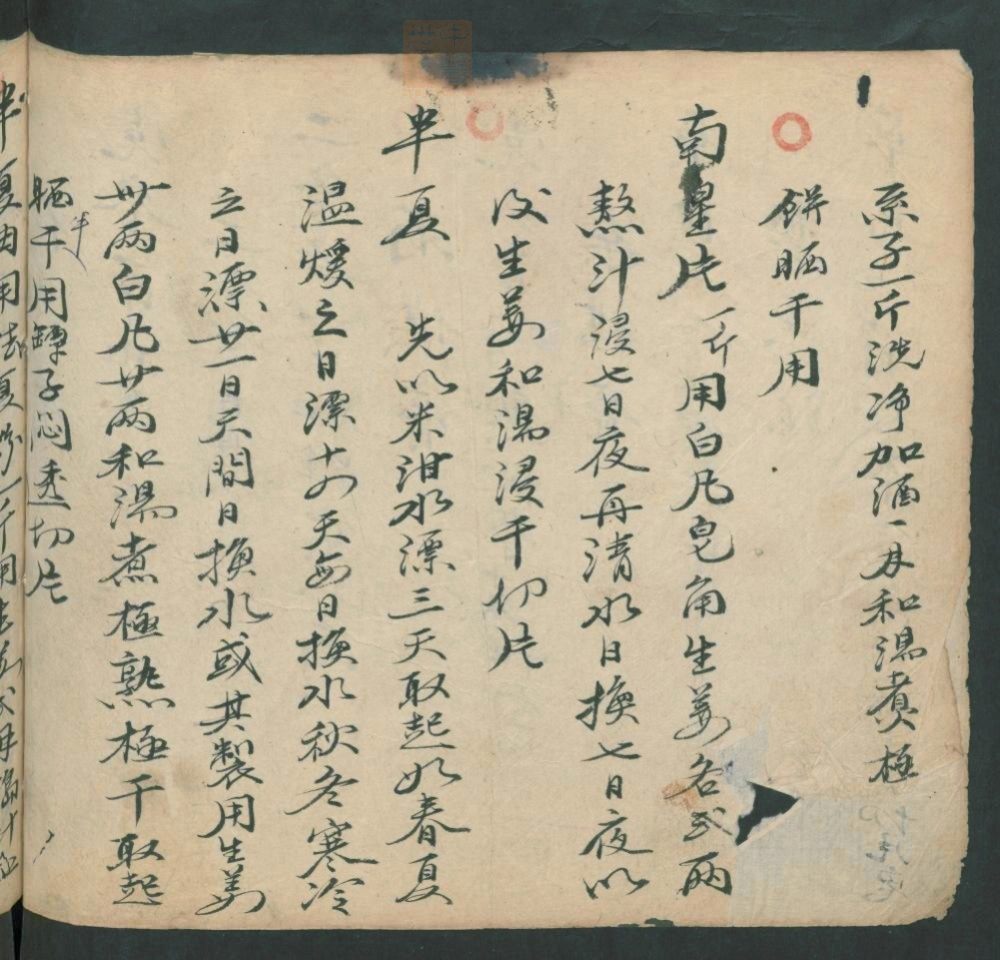 系子一斤洗净加酒一升和湯煮極
餅晒干用
南星片 一斤用白凡皂角生姜各弍兩
熬汁浸七日夜再清水日換七日夜以
後生姜和湯浸干切片
半夏 先以米泔水漂三天取起如春夏
温煖之日漂十四天每日換水秋冬寒冷
之日漂廿一日天間日換水或其製用生姜
卅兩白凡廿兩和湯煮極熟極干取起
晒半干用罈子悶透切片
半夏 用 夏 一斤用生姜